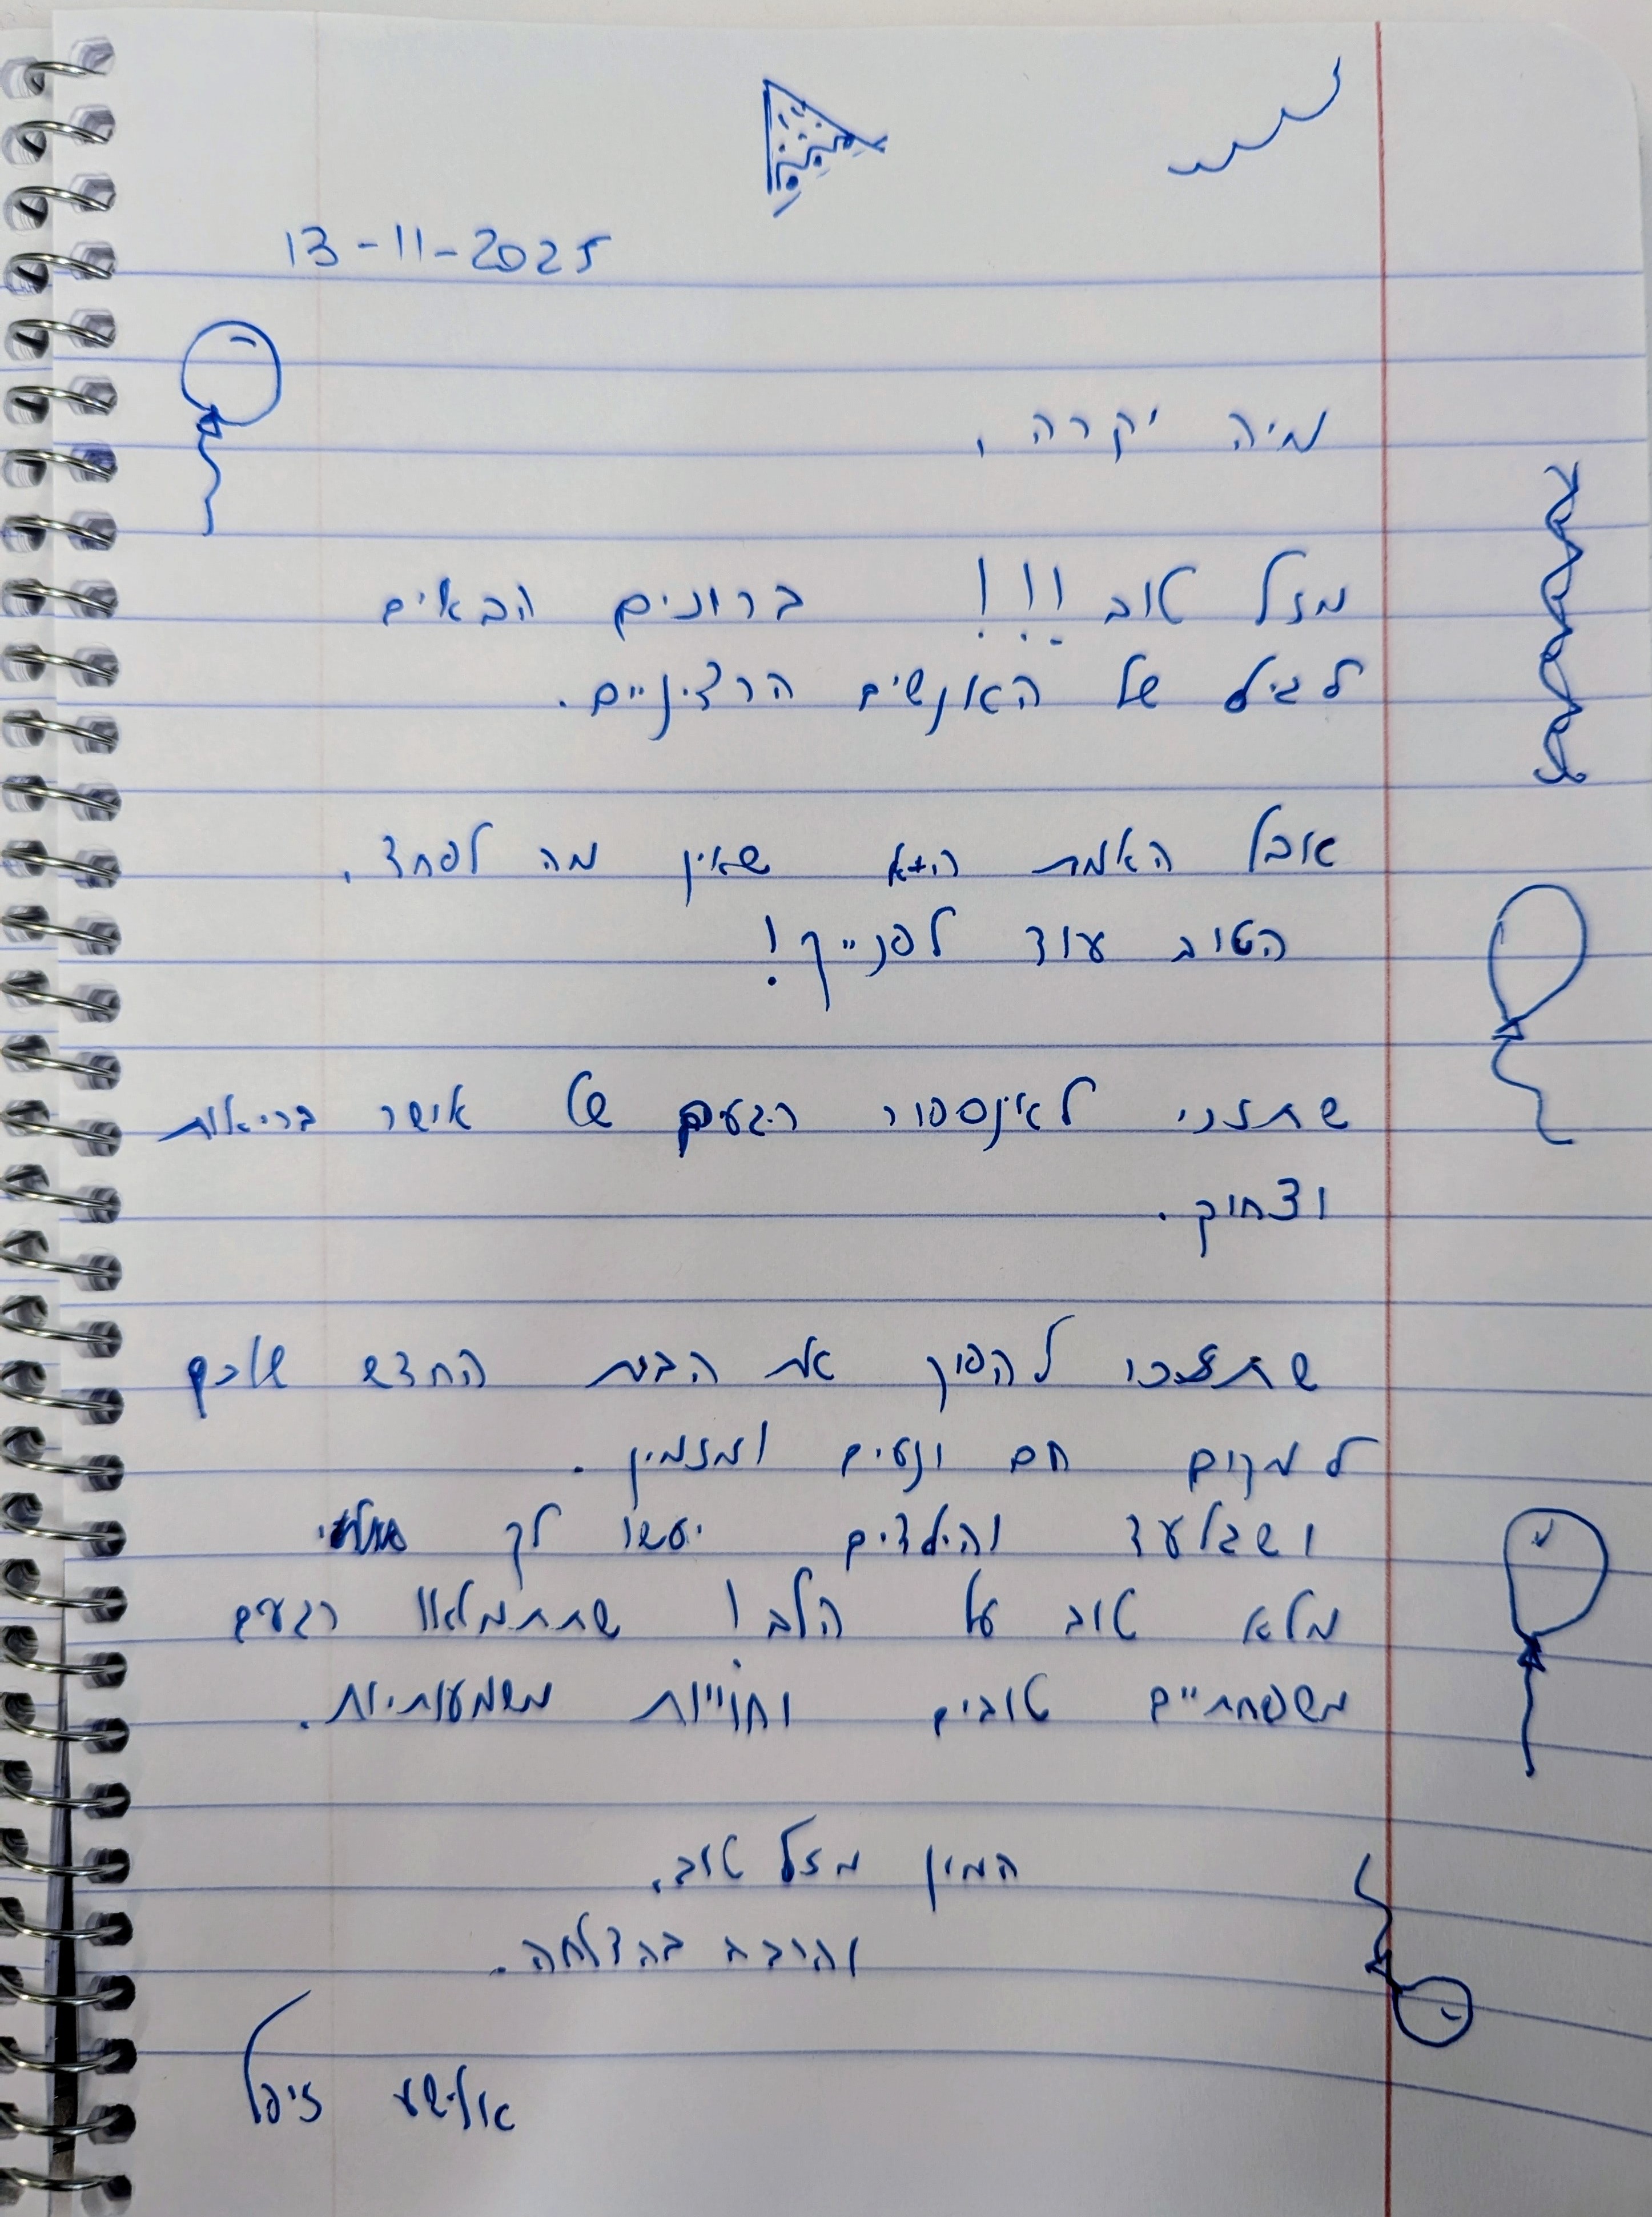 13-11-2025
מיה יקרה,
מזל טוב!!! ברוכים הבאים
לגיל של האנשים הרציניים.
אבל האמת היא שאין מה לפחד.
הטוב עוד לפנייך!
שתזכי לאינספור רגעים של אושר בריאות
וצחוק.
שתזכו להפוך את הבית החדש שלכם
למקום חם ונעים ומזמין.
ושגלעד והילדים יעשו לך
מלא טוב על הלב! שתתמלאו רגעים
משפחתיים טובים וחוויות משמעותיות.
המון מזל טוב,
והרבה בהצלחה.
אלישע זיסל